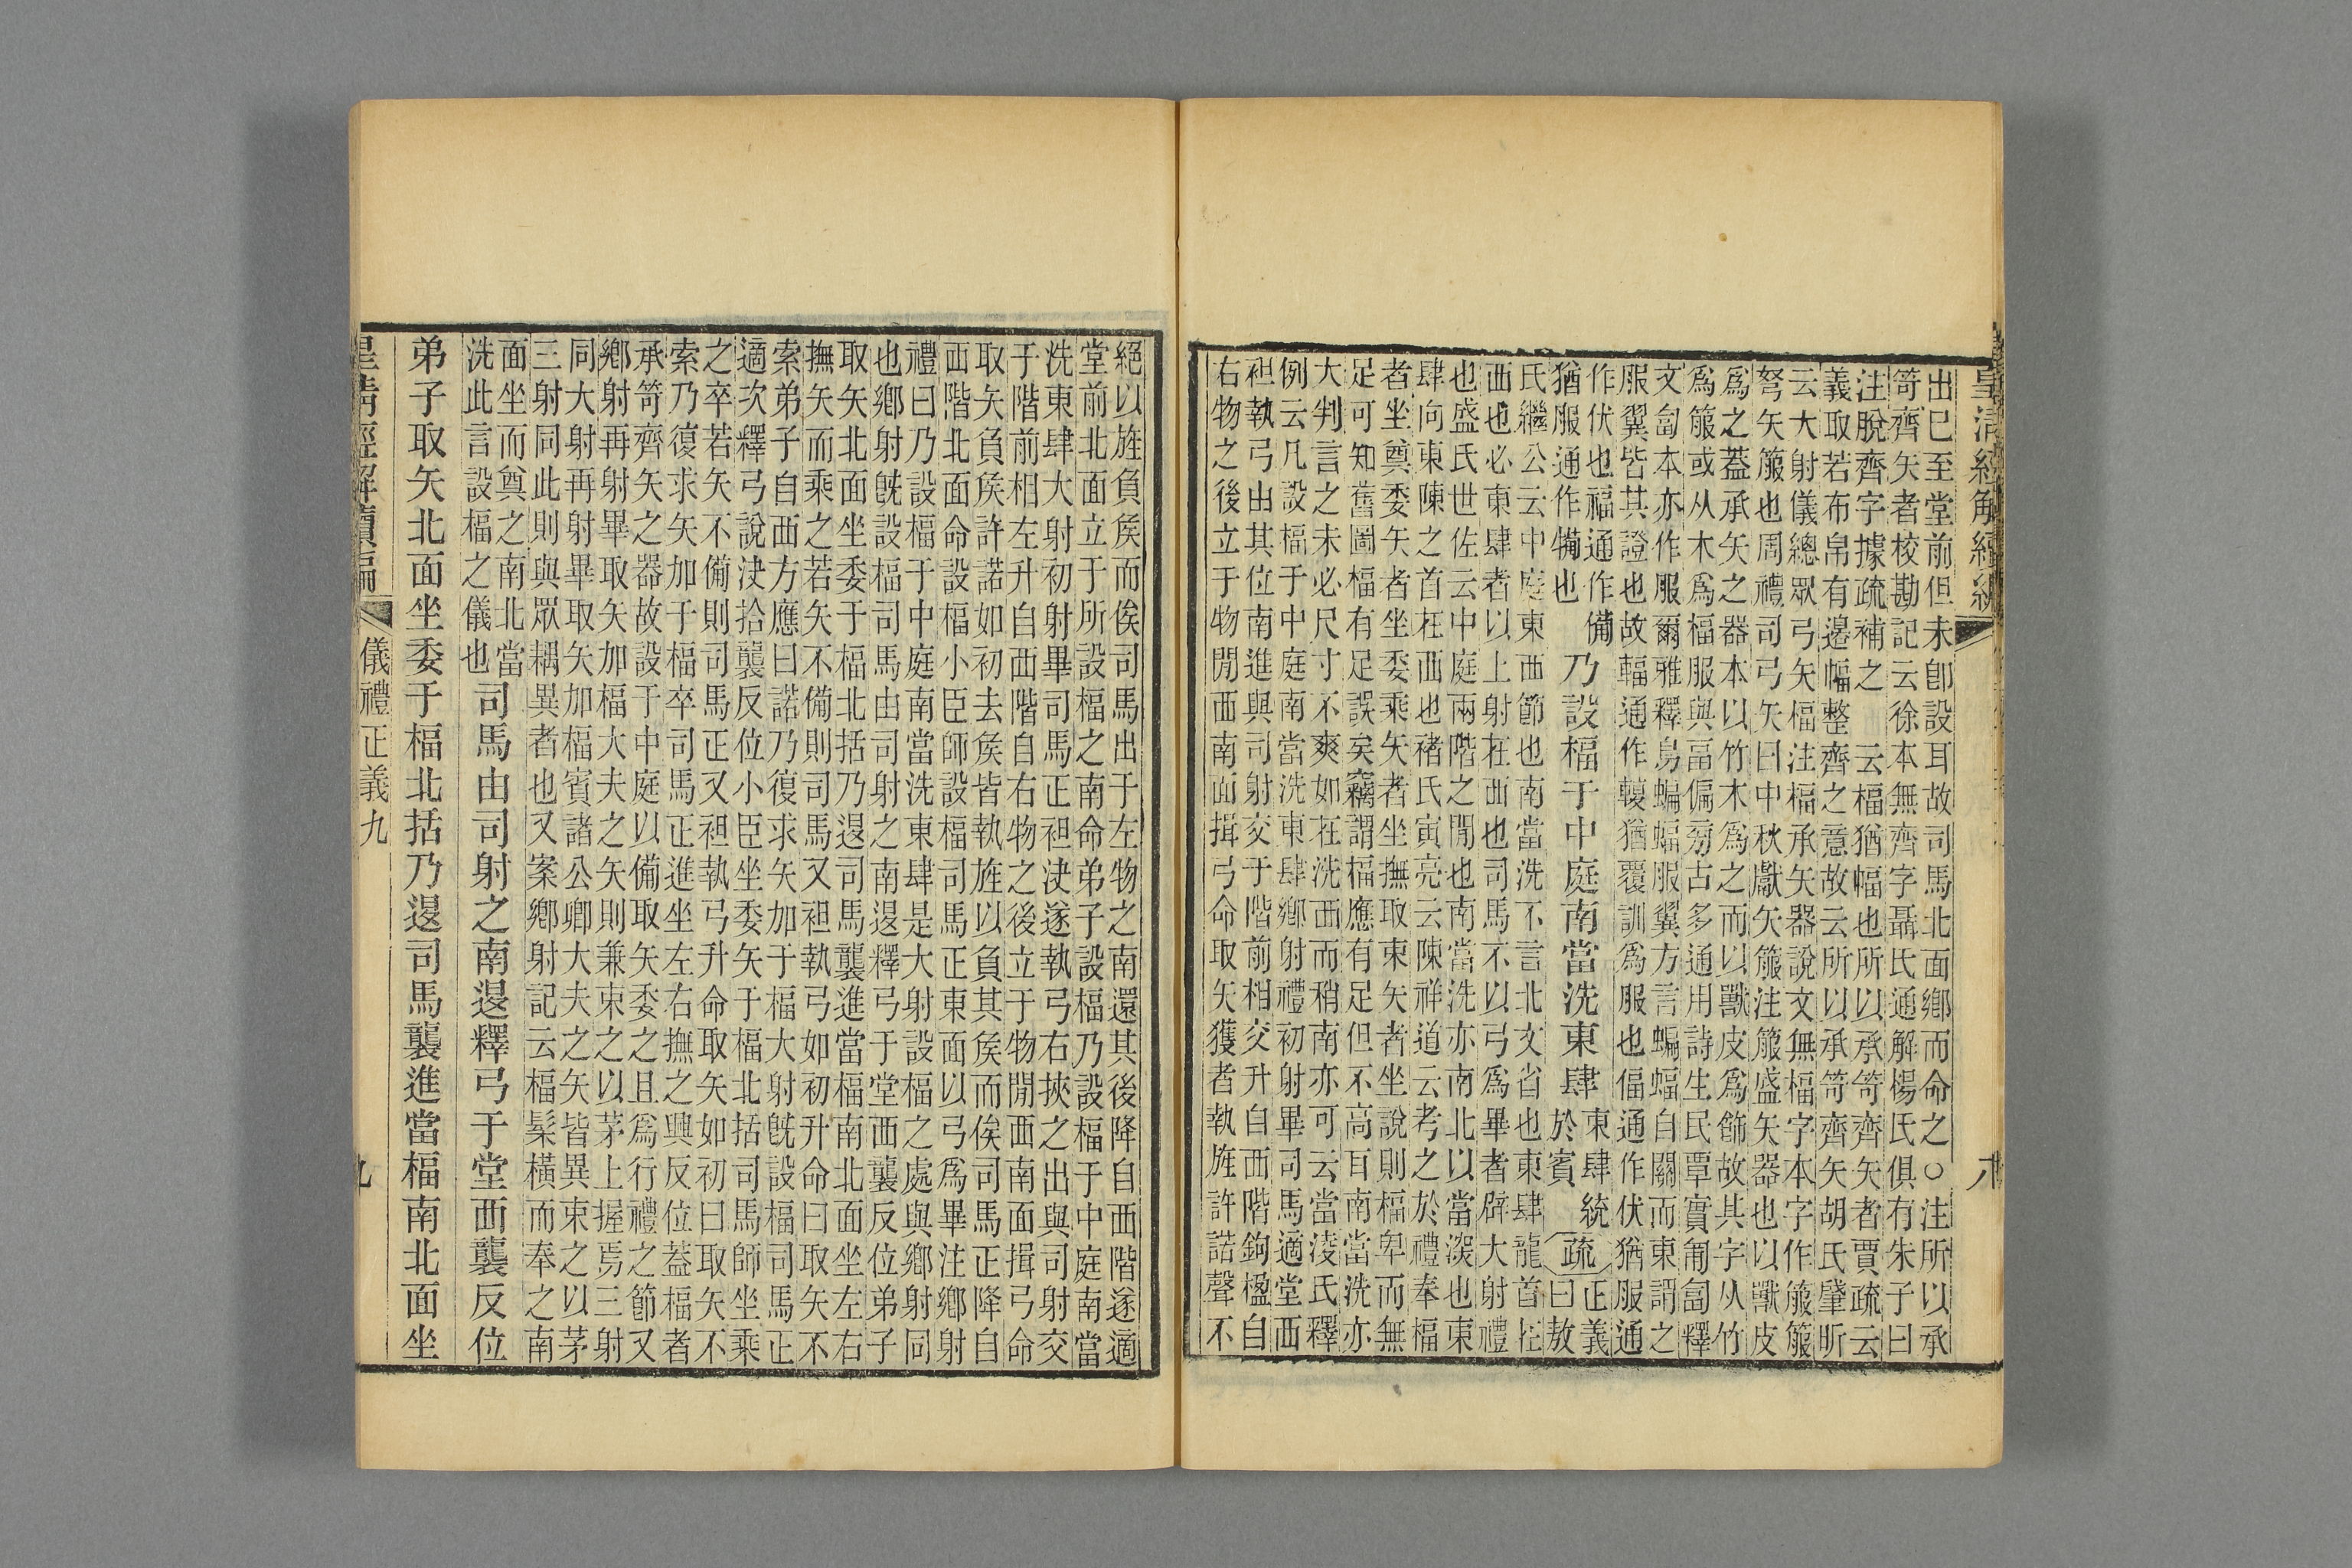 皇清經解續編 八
出巳至堂前但未卽設耳故司馬北面鄉而命之○注所以承
笴齊矢者校勘記云徐本無齊字聶氏通解楊氏俱有朱子曰
注脫齊字據疏補之 云楅猶幅也所以承笴齊矢者賈疏云
義取若布帛有邊幅整齊之意故云所以承笴齊矢胡氏肇昕
云大射儀總眾弓矢楅注楅承矢器說文無楅字本字作箙箙
弩矢箙也周禮司弓矢曰中秋獻矢箙注箙盛矢器也以獸皮
爲之葢承矢之器本以竹木爲之而以獸皮爲飾故其字从竹
爲箙或从木爲楅服與畐偏旁古多通用詩生民覃實匍匐釋
文匐本亦作服爾雅釋鳥蝙蝠服翼方言蝙蝠自關而東謂之
服翼皆其證也故輻通作䡩猶覆訓爲服也偪通作伏猶服通
作伏也福通作備
猶服通作犕也
乃設楅于中庭南當洗東肆
東肆統
於賓
疏
正義
曰敖
氏繼公云中庭東西節也南當洗不言北文省也東肆龍首在
西也必東肆者以上射在西也司馬不以弓爲畢者辟大射禮
也盛氏世佐云中庭兩階之閒也南當洗亦南北以當深也東
肆向東陳之首在西也褚氏寅亮云陳祥道云考之於禮奉楅
者坐奠委矢者坐委乘矢者坐撫取束矢者坐說則楅卑而無
足可知舊圖楅有足誤矣竊謂楅應有足但不高耳南當洗亦
大判言之未必尺寸不爽如在洗西而稍南亦可云當淩氏釋
例云凡設楅于中庭南當洗東肆鄉射禮初射畢司馬適堂西
袒執弓由其位南進與司射交于階前相交升自西階鉤楹自
右物之後立于物閒西南面揖弓命取矢獲者執旌許諾聲不
絕以旌負侯而俟司馬出于左物之南還其後降自西階遂適
堂前北面立于所設楅之南命弟子設楅乃設楅于中庭南當
洗東肆大射初射畢司馬正袒決遂執弓右挾之出與司射交
于階前相左升自西階自右物之後立于物閒西南面揖弓命
取矢負侯許諾如初去侯皆執旌以負其侯而俟司馬正降自
西階北面命設楅小臣師設楅司馬正東面以弓爲畢注鄉射
禮曰乃設楅于中庭南當洗東肆是大射設楅之處與鄉射同
也鄉射旣設楅司馬由司射之南退釋弓于堂西襲反位弟子
取矢北面坐委于楅北括乃退司馬襲進當楅南北面坐左右
撫矢而乘之若矢不備則司馬又袒執弓如初升命曰取矢不
索弟子自西方應曰諾乃復求矢加于楅大射旣設楅司馬正
適次釋弓說決拾襲反位小臣坐委矢于楅北括司馬師坐乘
之卒若矢不備則司馬正又袒執弓升命取矢如初曰取矢不
索乃復求矢加于楅卒司馬正進坐左右撫之興反位葢楅者
承笴齊矢之器故設于中庭以備取矢委之且爲行禮之節又
鄉射再射畢取矢加楅大夫之矢則兼束之以茅上握焉三射
同大射再射畢取矢加楅賓諸公卿大夫之矢皆異束之以茅
三射同此則與眾耦異者也又案鄉射記云楅髤橫而奉之南
面坐而奠之南北當
洗此言設楅之儀也
司馬由司射之南退釋弓于堂西襲反位
弟子取矢北面坐委于楅北括乃退司馬襲進當楅南北面坐
皇清經解續編 儀禮正義九 九